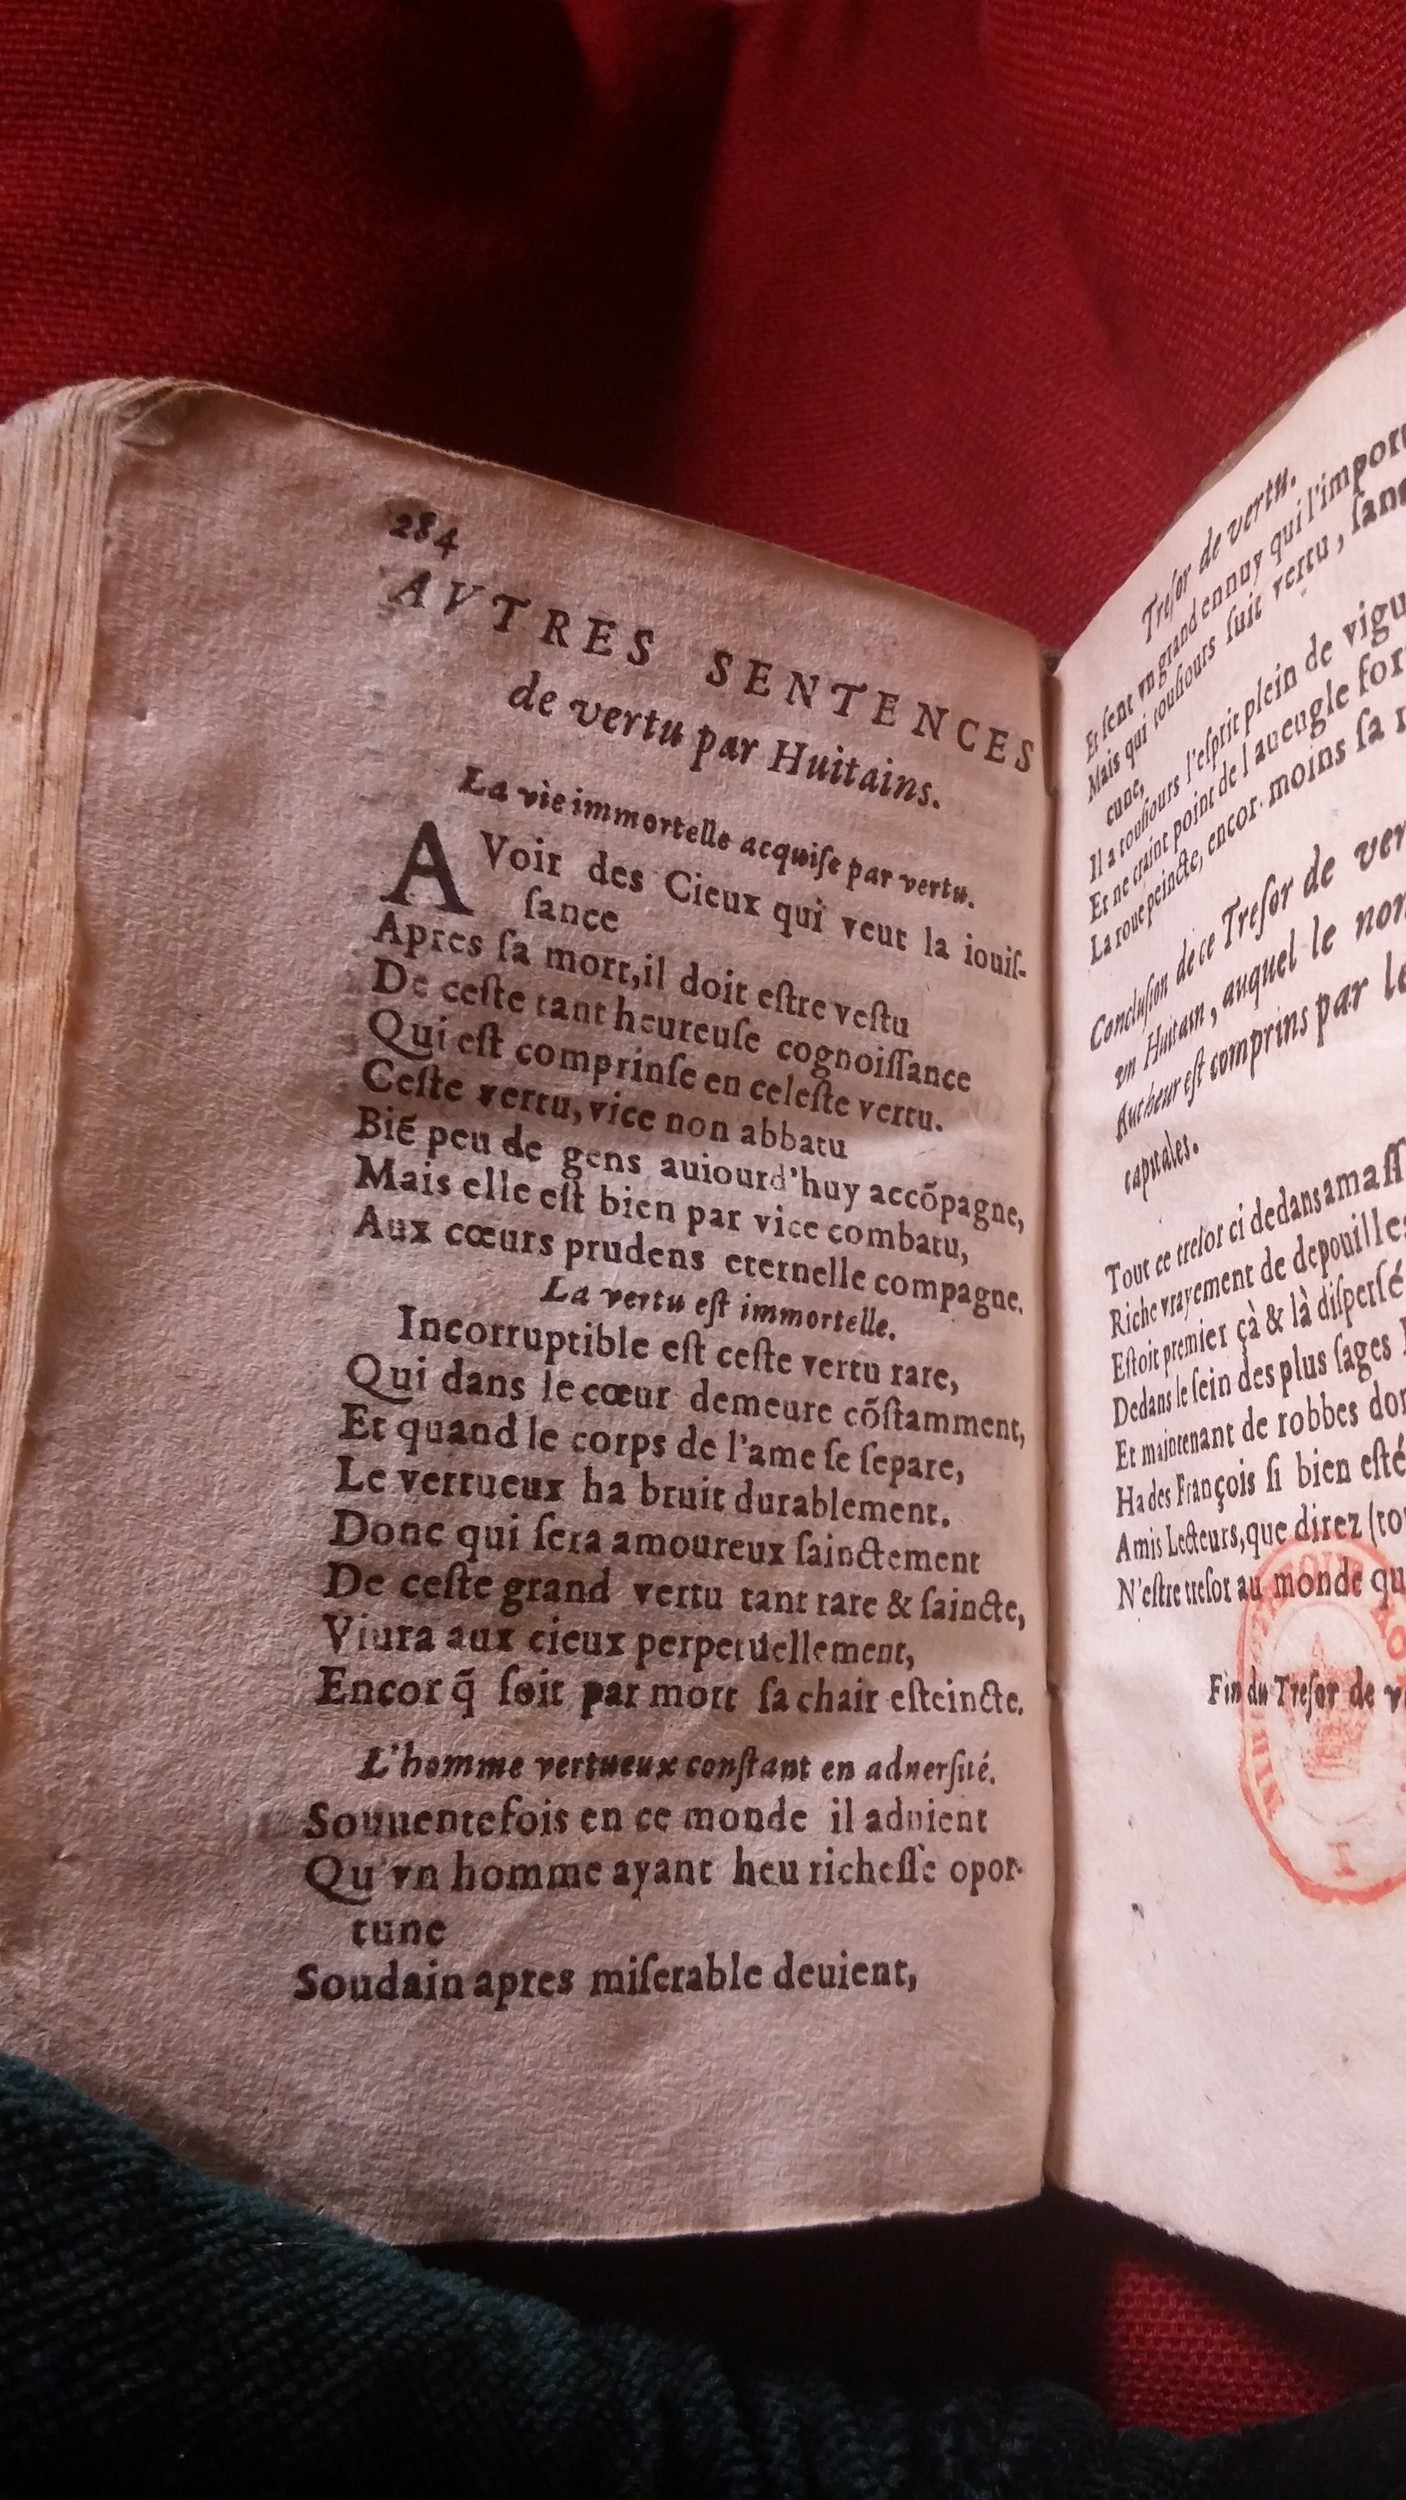 284
AVTRES SENTENCES
de vertu par Huitains.
La vie immortelle acquiſe par vertu.
AVoir des Cieux qui veut la iouiſ-
ſance
Apres ſa mort, il doit eſtre veſtu
De ceſte tant heureuſe cognoiſſance
Qui eſt comprinſe en celeſte vertu.
Ceſte vertu, vice non abbatu
Biẽ peu de gens auiourd'huy accõpagne,
Mais elle eſt bien par vice combatu,
Aux cœurs prudens eternelle compagne.
La vertu eſt immortelle.
Incorruptible eſt ceſte vertu rare,
Qui dans le cœur demeure cõſtamment,
Et quand le corps de l'ame ſe ſepare,
Le vertueux ha bruit durablement.
Donc qui ſera amoureux ſainctement
De ceſte grand vertu tant rare & ſaincte,
Viura aux cieux perpetuellement,
Encor q̃ ſoit par mort ſa chair eſteincte.
L'homme vertueux conſtant en aduerſité.
Souuentefois en ce monde il aduient
Qu'vn homme ayant heu richeſſe opor-
tune
Soudain apres miſerable deuient,
Treſor de vertu.
Et ſent vn grand ennuy qui l'import
Mais qui touſiours ſuit vertu, ſans
cune,
Il a touſiours l'eſprit plein de vigu
Et ne craint point de l'aueugle for
La roue peincte, encor moins ſa
Concluſion de ce Treſor de ver
vn Huitain, auquel le nom
Autheur eſt comprins par le
capitales.
Tout ce treſor ci dedans amaſſ
Riche vrayement de depouilles
Eſtoit premier çà & là diſperſé
Dedans le ſein des plus ſages
Et maintenant de robbes dor
Ha des François ſi bien eſté
Amis Lecteurs, que direz (to
N'eſtre treſor au monde qu
Fin du Treſor de v